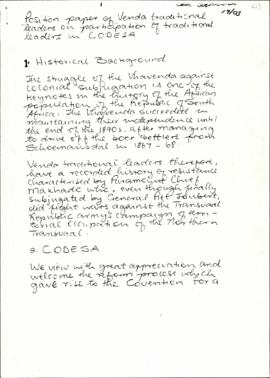 Position paper of Venda traditional
leaders on participation of traditional
leaders in CODESA
1. Historical Background
The struggle of the Vhavenda against
colonial subjugation is one of the
keynotes in the history of the African
population of the Republic of South
Africa. The Vhavenda succeeded in
maintaining their independence until
the end of the 1890s, after managing
to drive off the boer settlers from
Schoemansdal in 1867-68.
Venda traditional leaders therefore,
have a recorded history of resistance
characterised by Paramount Chief
Makhado who, even though finally
subjugated by General Piet Joubert,
did fight wars against the Transvaal
Republic army's campaign of terri-
torial occupation of the Northern
Transvaal.
2. CODESA
We view with great appreciation and
welcome the reform process which
gave rise to the Covention for a